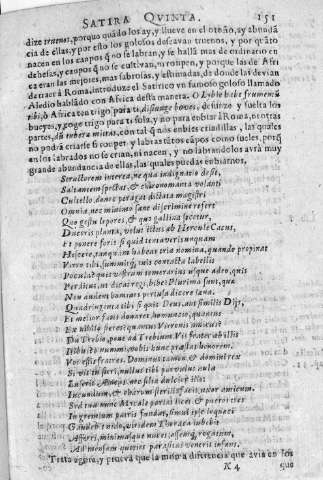 SATIRA QVINTA. 151
dize truenos, porque quādo los ay, y llueve en el otoño, ay abundā
cia de ellas, y por esto los golosos desseavan truenos, y por quāto
nacen en los campos q̄ no se labran, y se hallā mas de ordinario en
dehesas, y campos q̄ no se cultivan, ni rompen, y porque las de Afri
ca eran las mejores, mas sabrosas, y estimadas, de donde las devian
de traer à Roma, introduze el Satirico un famoso goloso llamado
Aledio hablādo con Africa desta manera. O Libbe habe frumentū
tibi, ò Africa ten trigo para ti, disiunge boves, desunze y suelta los
bueyes, y coge trigo para ti sola, y no para enbiar à Roma, ni otras
partes, dū tubera mittas, con tal q̄ nos enbies criadillas, las quales
no podrā criarse si rompes y labras tātos cāpos como sueles, porq̄
en los labrados no se crian, ni nacen, y no labrandolos avrà muy
grande abundancia de ellas, las quales puedas enbiarnos,
Structorem interea, ne qua indignatio desit,
Saltantem spectas, & chironomunta volanti
Cultello, donec peragat dictata magistri
Omnia, nec minimo sane discrimine refert
Quo gestu lepores, & quo gallina secetur,
Duceris planta, velut ictus ab Hercule Cacus,
Et ponere foris si quid tentaveris unquam
Hiscere, tanquam habeas tria nomina, quando propinat
Virro tibi, sumitq́; tuis contacta labellis
Pocula? quis vestrum temerarius usque adeo, quis
Perditus, ut dicat regi, bibe? Plurima sunt, quæ
Non audent homines pertusa dicere lana.
Quadringenta tibi si quis Deus, aut similis Dijs,
Et melior fatis donaret homuncio, quantus
Ex nihilo fieres quantus Virronis amicus?
Da Trebio, pone ad Trebium. Vis frater ab illis
Ilibus? ô nummi, vobis hunc præstat honorem,
Vos estis fratres. Dominus tamen, & domini rex
Si vis tu fieri, nullus tibi parvulus aula
Luserit Æneas, nec filia dulcior illo:
Iucundum, & charum sterilis facit uxor amicum.
Sed tua nunc Mycale pariat licet, & pueros tres
In gremium patris fundat, simul ipse loquaci
Gaudebit nido, viridem thoraca iubebit
Afferri, minimasque nuces, assemq́; rogatum,
Ad mensam quoties parasitus venerit infans.
Trata agora, y prueva que la misma diferencia que avia en los
K 4 que